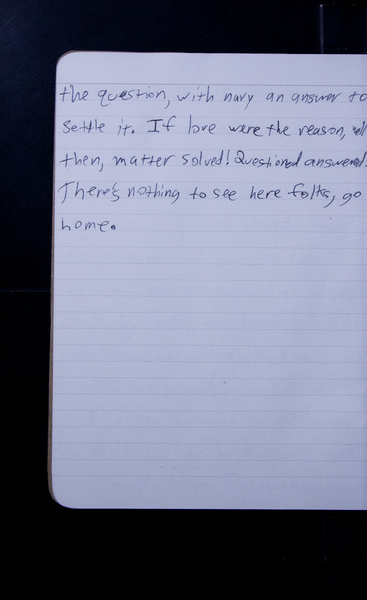 the question, with navy an answer to
settle it. If love were the reason, well
then, matter solved! Questioned answered.
There's nothing to see here folks, go
home.